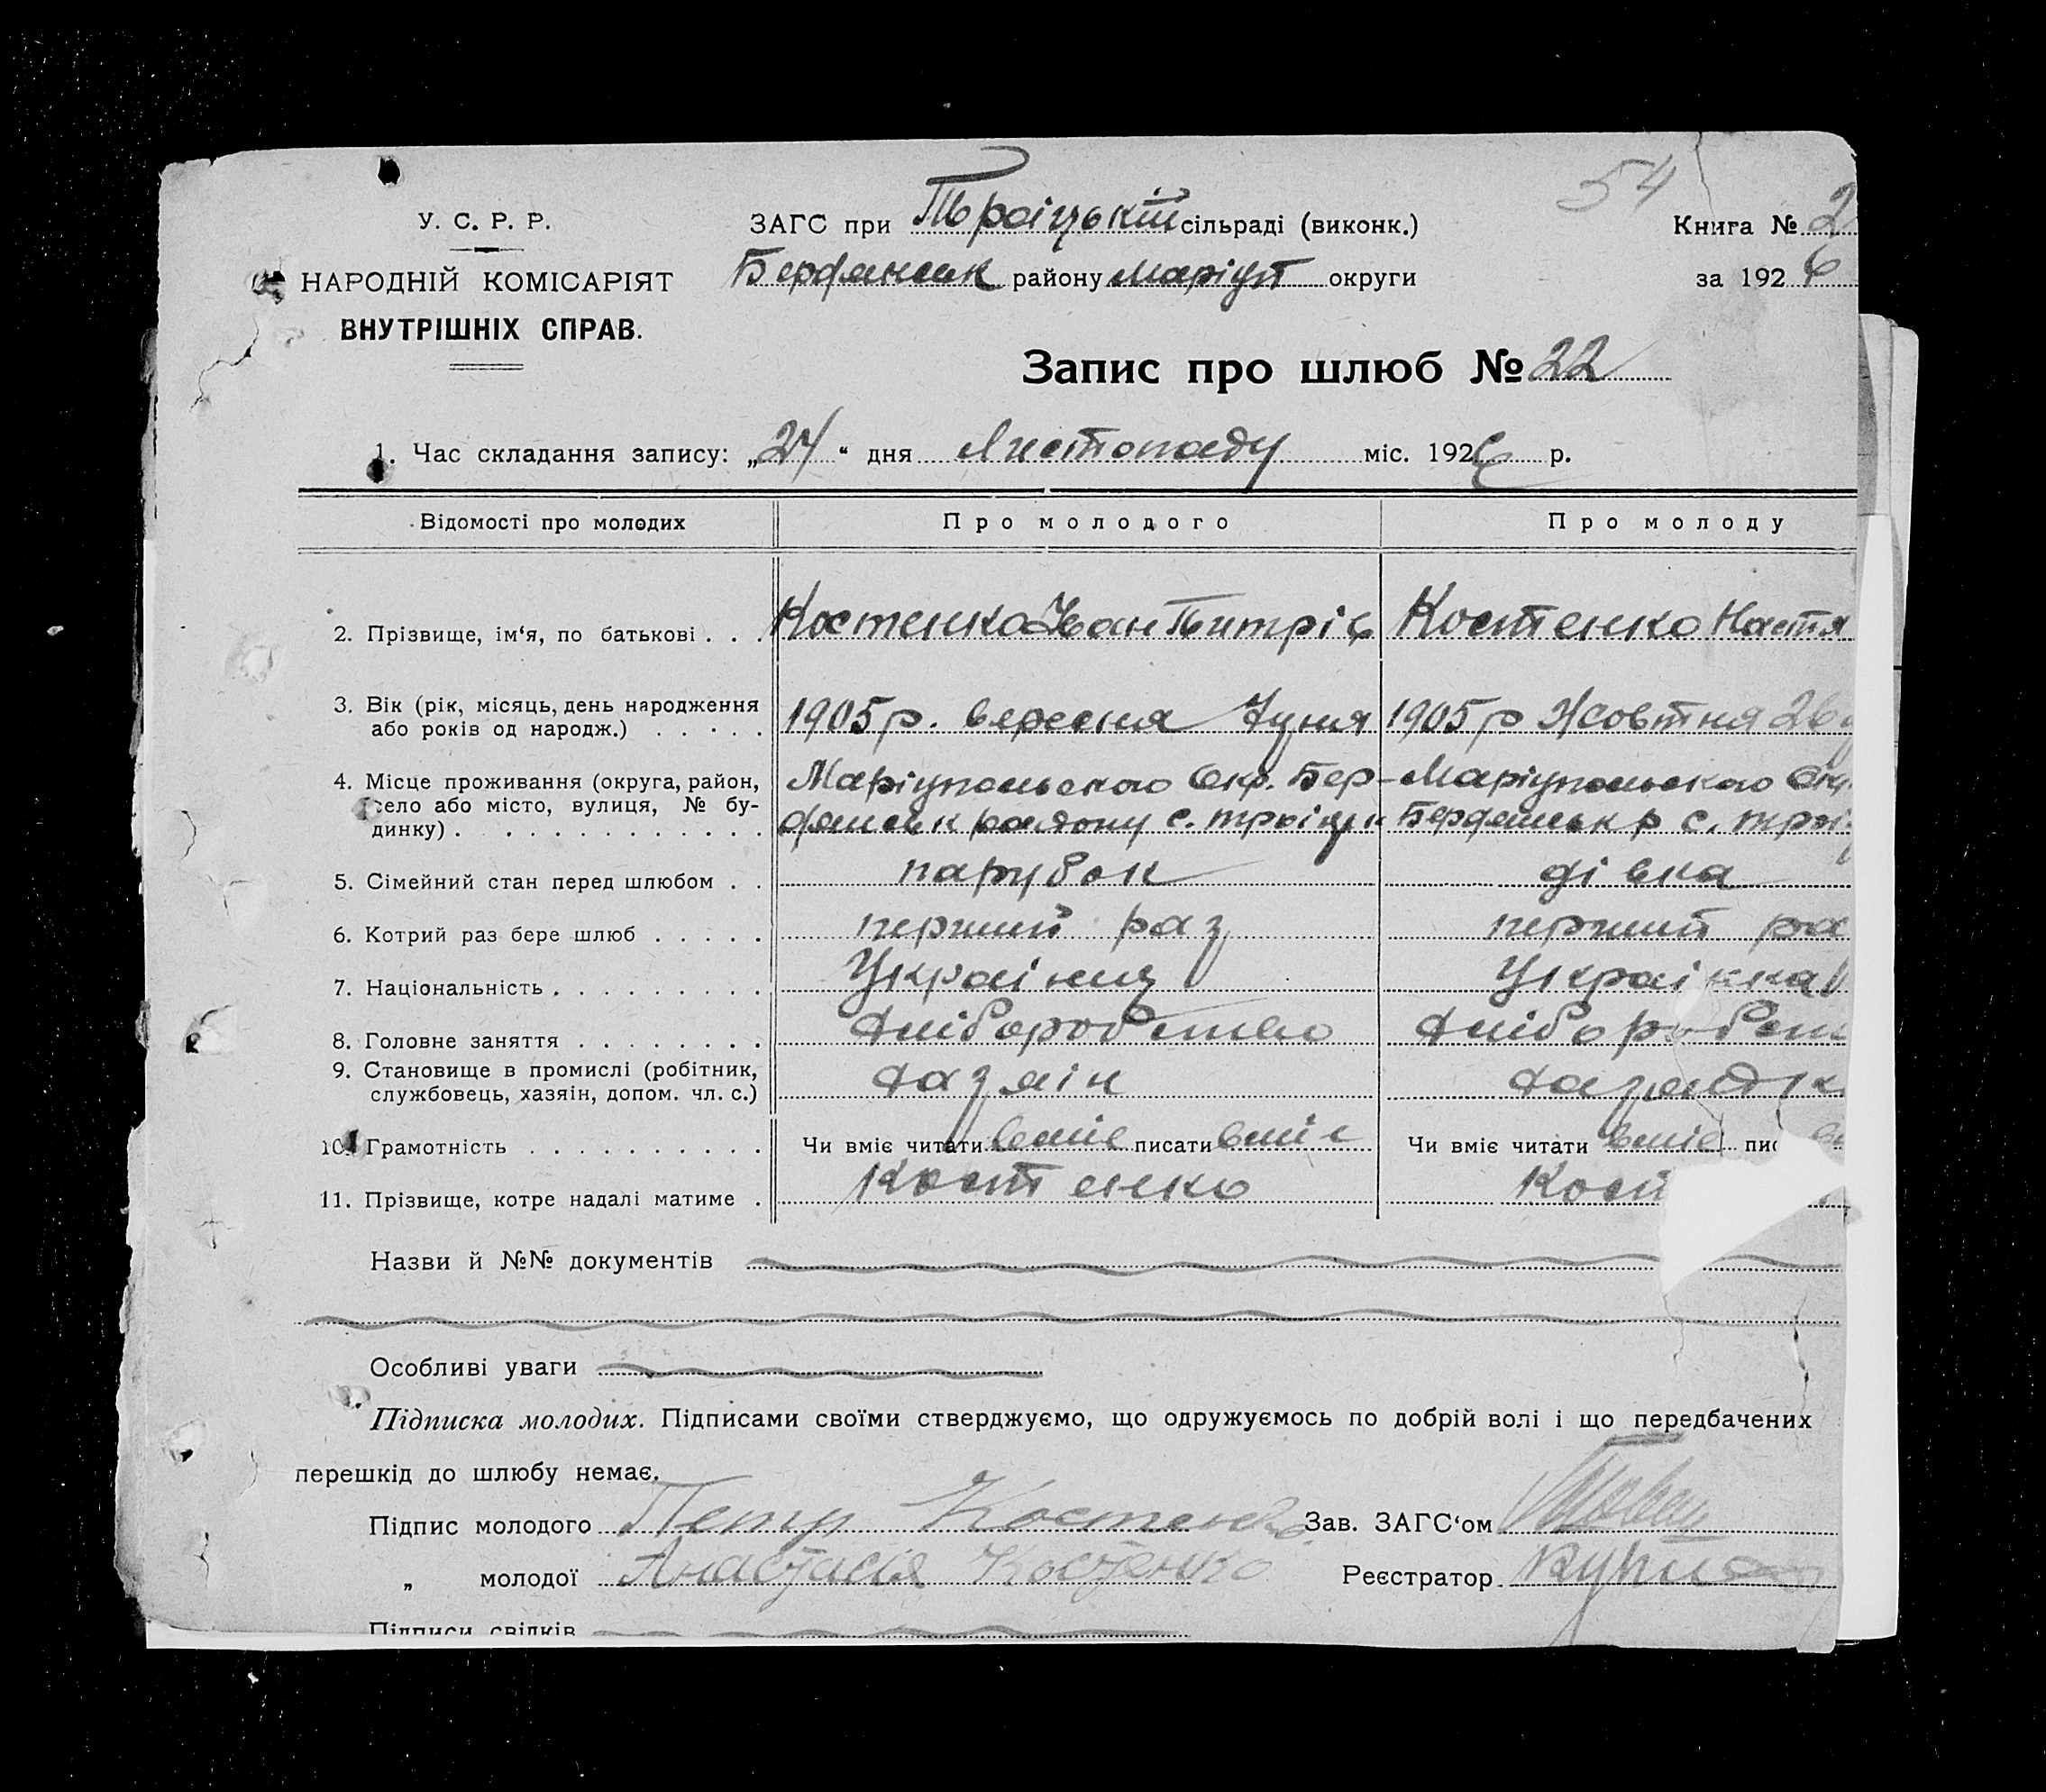 54
У. С. Р. Р.
НАРОДНІЙ КОМІСАРІЯТ
ВНУТРІШНІХ СПРАВ.
ЗАГС при Троіцькій сільраді (виконк.)
Бердянськ району Маріуп округи
Книга № 2
за 1926
Запис про шлюб № 22
1. Час складання запису: „24“ дня Листопаду міс. 1926 р.
Відомості про молодих Про молодого Про молоду
2. Прізвище, ім‘я, по батькові . . . Костенко Іван Костенко Настя
3. Вік (рік, місяць, день народження
або років од народж.) . . . . . 1905 р. вересня 7 дня 1905 р Жовтня 26
4. Місце проживання (округа, район, Маріупольського Окр. Бер- Маріупольського Окр
село або місто, вулиця, № бу-
динку) . . . . . . . . . . . . . дянськ району с. Троіцьк Бердянськ р с. Троі
5. Сімейний стан перед шлюбом . . парубок дівка
6. Котрий раз бере шлюб . . . . . перший раз перший ра
7. Національність . . . . . . . . . Украінец Украінка
8. Головне заняття . . . . . . . . хліборобство хлібороб
9. Становище в промислі (робітник,
службовець, хазяін, допом. чл. с.) хазяін
10. Грамотність . . . . . . . . . . Чи вміє читати вміє писати вміє Чи вміє читати вміє пис
11. Прізвище, котре надалі матиме . Костенко Кост
Назви й №№ документів
Особливі уваги
Підписка молодих. Підписами своїми стверджуємо, що одружуємось по добрій волі і що передбачених
перешкід до шлюбу немає.
Підпис молодого Петр Костенко Зав. ЗАГС‘ом
„ молодої Анастасія Костенко Реєстратор
Підписи свідків